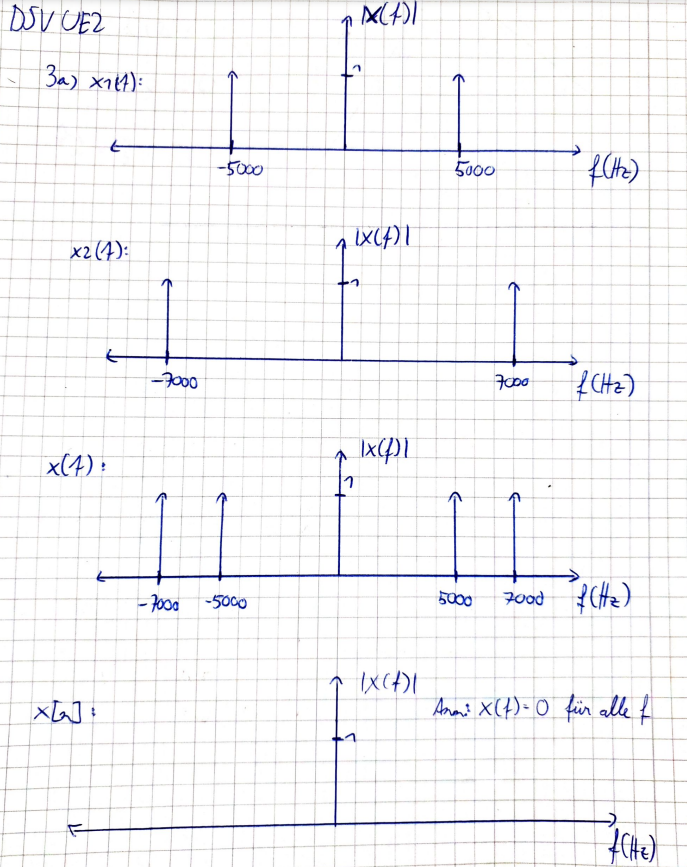 DSV UE2
|X(f)|
3a) x1(t):
1
-5000
5000
f(Hz)
x2(t):
|X(f)|
1
-7000
7000
f(Hz)
x(t):
|X(f)|
1
-7000
-5000
5000
7000
f(Hz)
x[n]:
|X(f)|
Anm: X(f)=0 für alle f
1
f(Hz)